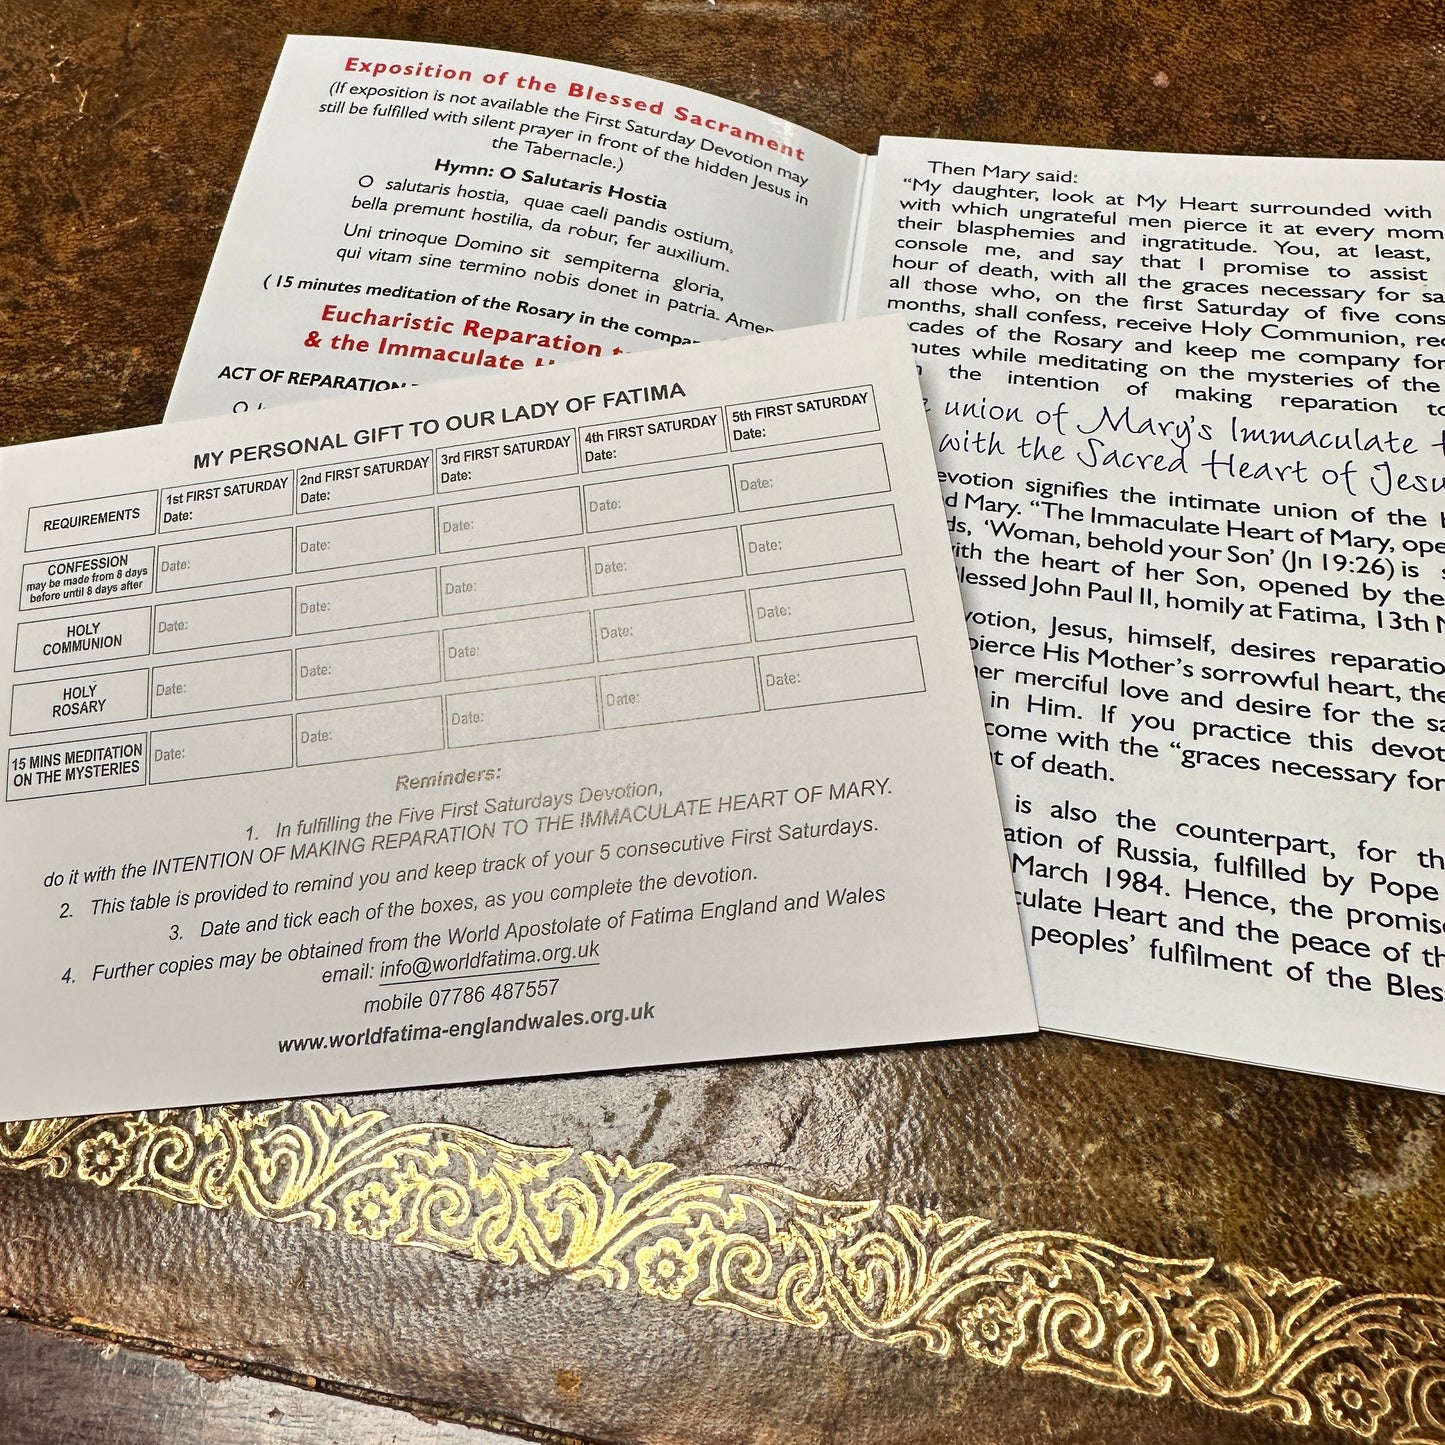 Exposition of the Blessed Sacrament
(If exposition is not available the First Saturday Devotion may
still be fulfilled with silent prayer in front of the hidden Jesus in
the Tabernacle.)
Hymn: O Salutaris Hostia
O salutaris hostia, quae caeli pandis ostium,
bella premunt hostilia, da robur, fer auxilium.
Uni trinoque Domino sit sempiterna gloria,
qui vitam sine termino nobis donet in patria. Amen
( 15 minutes meditation of the Rosary in the
Eucharistic Reparation
& the Immaculate
ACT OF REPARATION
O
Then Mary said:
“My daughter, look at My Heart surrounded with
with which ungrateful men pierce it at every
their blasphemies and ingratitude. You, at least,
console me, and say that I promise to assist
hour of death, with all the graces necessary for
all those who, on the first Saturday of five
months, shall confess, receive Holy Communion,
of the Rosary and keep me company for
while meditating on the mysteries of the
the intention of making reparation
union of Mary's Immaculate
with the Sacred Heart of
signifies the intimate union of the
Mary. “The Immaculate Heart of Mary,
‘Woman, behold your Son’ (Jn 19:26) is
with the heart of her Son, opened by the
John Paul II, homily at Fatima, 13th
Jesus, himself, desires
pierce His Mother’s sorrowful heart,
merciful love and desire for the
in Him. If you practise this
come with the “graces necessary for
of death.
is also the counterpart, for
of Russia, fulfilled by Pope
March 1984. Hence, the
Heart and the peace of
peoples’ fulfilment of the
MY PERSONAL GIFT TO OUR LADY OF FATIMA
REQUIREMENTS
1st FIRST SATURDAY
Date:
2nd FIRST SATURDAY
Date:
3rd FIRST SATURDAY
Date:
4th FIRST SATURDAY
Date:
5th FIRST SATURDAY
Date:
CONFESSION
may be made from 8 days
before until 8 days after
Date: Date: Date: Date: Date:
HOLY
COMMUNION
Date: Date: Date: Date: Date:
HOLY
ROSARY
Date: Date: Date: Date: Date:
15 MINS MEDITATION
ON THE MYSTERIES
Date: Date: Date: Date: Date:
Reminders:
1. In fulfilling the Five First Saturdays Devotion,
do it with the INTENTION OF MAKING REPARATION TO THE IMMACULATE HEART OF MARY.
2. This table is provided to remind you and keep track of your 5 consecutive First Saturdays.
3. Date and tick each of the boxes, as you complete the devotion.
4. Further copies may be obtained from the World Apostolate of Fatima England and Wales
email: info@worldfatima.org.uk
mobile 07786 487557
www.worldfatima-englandwales.org.uk